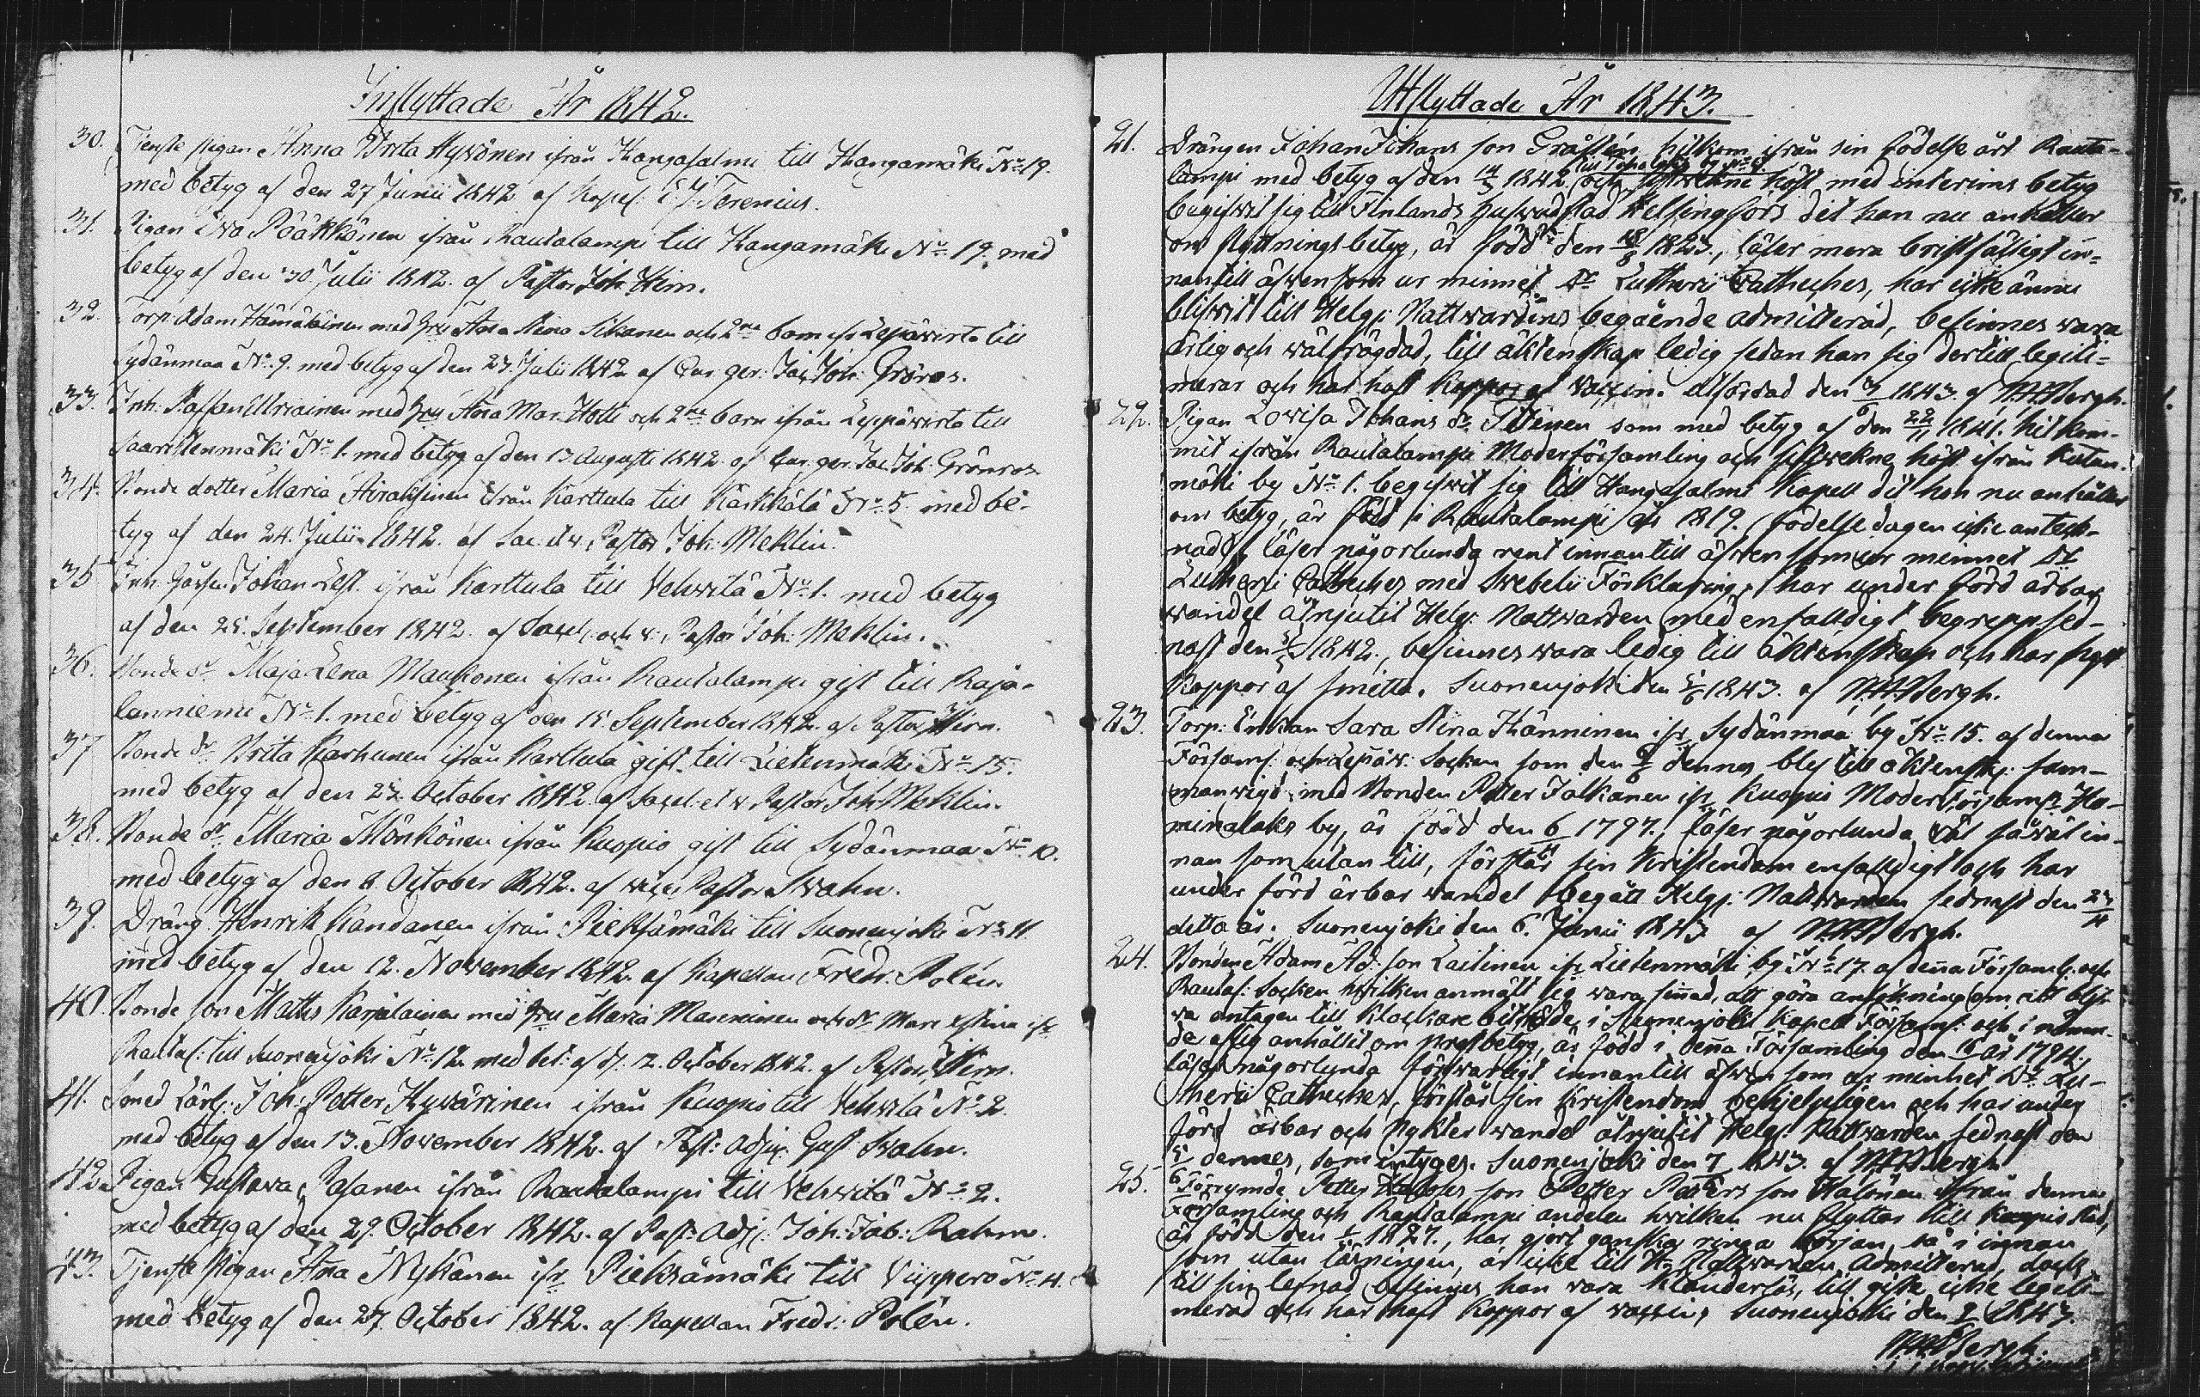 Inflyttade År 1842.
30. Tjenste pigan Anna Brita Hyvönen ifrån Kangasalmi till Kangamäki No 19.
med betyg af den 27 Junii 1842 af Kapel: E. J. Forenius.
31. Pigan Eva Pääkkönen ifrån Rautalampi till Kangamäki No 19. med
betyg af den 30 Julii 1842. af Pastor Joh. Hirn.
32. Torp: Adam Hämäläinen med Hru Anna Stina Sikanen och 2ne barn ifr Lepävirta till
Sydänmaa No 9. med betyg af den 23 Julii 1842 af Cur. ger: Jac. Joh: Grönros.
33. Inh: Staffan Uriainen med Hru Anna Mar. Hott och 2ne barn ifrån Leppävirta till
Saaristenmäki No 1. med betyg af den 13 Augusti 1842. af Cur. ger. Jac. Joh: Grönros
34. Bonde dotter Maria Airaksinen ifrån Karttula till Kärkkälä No 5. med be-
tyg af den 24. Julii 1842. af Sac. et v. Pastor Joh: Meklin.
35 Inh: Johan Lest. ifrån Karttula till Vehvilä No 1. med betyg
af den 25. September 1842. af Sacel. och v. Pastor Joh: Meklin.
36. Bonde dr. Maja Lena Maukonen ifrån Rautalampi gift till Raja-
lanniemi No 1. med betyg af den 15. September 1842. af Pastor Hirn.
37 Bonde dr. Brita Karhunen ifrån Karttula gift till Lietenmäki No 15.
med betyg af den 23. October 1842. af Sacel. et v. Pastor Joh: Meklin.
38. Bonde dr. Maria Mönkönen ifrån Kuopio gift till Sydänmaa No 10.
med betyg af den 8. October 1842. af vice Pastor Svahn.
39. Dräng Henrik Kandanen ifrån Pieksämäki till Suonenjoki No 11
med betyg af den 12. November 1842. af Kapellan Fredr. Polén.
40. Bonde son Matts Karjalainen med Hru Maria Manninen och dr. Mari Stina ifr.
Rautal: till Suonenjoki No 12 med bet: af d. 2. October 1842. af Pastor Hirn.
41. Smed Lärl: Joh: Petter Hyvärinen ifrån Kuopio till Vehvilä No 2.
med betyg af den 13. November 1842. af Past: adj: Gust Svahn.
42. Pigan Gustava Pasanen ifrån Rautalampi till Vehvilä No 2.
med betyg af den 29. October 1842. af Past: Adj: Joh: Jab: Rahm.
43. Tjenste pigan Anna Nykänen ifr Pieksämäki till Viippero No 4.
med betyg af den 27. October 1842. af Kapellan Fredr: Polén.
Utflyttade År 1843.
21. Drängen Johan Johans son Gråstén, hitkom ifrån sin födelse ort Rauta-
lampi med betyg af den 1842. och sistvekne höst med interims betyg
begifvit sig till Finlands hufvudstad Helsingfors dit han nu anhåller
om flyttnings betyg, är född den 1823., läser mera bristfälligt in-
nantill äfven som ur minnet Dr. Lutheri Catheches, har icke ännu
blifvit till Helg: Nattvardens begående admitterad, befinnes vara
ärlig och välfrägdad, till äktenskap ledig sedan han sig dertill legiti-
merar och har haft koppor af vaccin. utfärdad den 1843. af Bergh.
22. Pigan Lovisa Johans dr. Titinen som med betyg af den 22/11 1841. hit kom-
mit ifrån Rautalampi Moderförsamling och sistvekne höst ifrån Kutun-
mäki by No 1. begifvit sig till Hangasalmi kapell dit hon nu anhåller
om betyg, är född i Rautalampi åhr 1819. (födelse dagen icke anteck-
nad), läser någorlunda rent innantill äfven som ur minnet Dr.
Lutheri Catheches med Svebelii Förklaring, har under förd ärbar
vandel åtnjutit Helg: Nattvarden med enfaldigt begrepp sed-
nast den 1842., befinnes vara ledig till äktenskap och har haft
koppor af smitta. Suonenjoki den 1843. af Bergh.
23. Torp: Enkan Sara Stina Hänninen ifr Sydänmaa by No 15. af denna
Församl: och Lepäv: Socken som den dennes blef till äktenskp: sam-
manvigd med Bonden Petter Jalkanen ifr Kuopio Moderförsaml: Ha-
minalaks by, är född den 6 1797., läser någorlunda väl såväl in-
nan som utan till, förstår sin kristendom enfaldigt och har
under förd ärbar vandel begått Helg: Nattvarden sednast den
detta år. Suonenjoki den 6. Junii 1843 af Bergh.
24. Bonden Adam Ad: son Laitinen ifr Lietenmäki by No 17. af denna Församl: och
Rautal: Socken hvilken anmält sig vara sinnad, att göra ansökning om att blif-
va antagen till klockare i Suonenjoki kapell Församl: och i nämn-
de afsig anhållit om prestbetyg, är född i denna Församling den år 1794.,
läser någorlunda försvarligt innantill äfven som ur minnet Dr. Lu-
theri Catheches, förstår sin kristendom behjelpligen och har under
förd ärbar och nykter vandel åtnjutit Helg: Nattvarden sednast den
dennes, som intyges. Suonenjoki den 7 1843. af Bergh
25. Petter son Petter Petters son Halonen ifrån denna
Församling och Rautalampi andelen hvilken nu flyttar till Kuopio stad,
är född den 1827., har gjort ganska ringa början så i innan
som utan läsningen, är icke till H. Nattvarden Admitterad, dock
till sin lefnad befinnes han vara klanderlös, till gifte icke legiti-
merad och har haft koppor af vaccin, Suonenjoki den 9 1843.
Bergh.